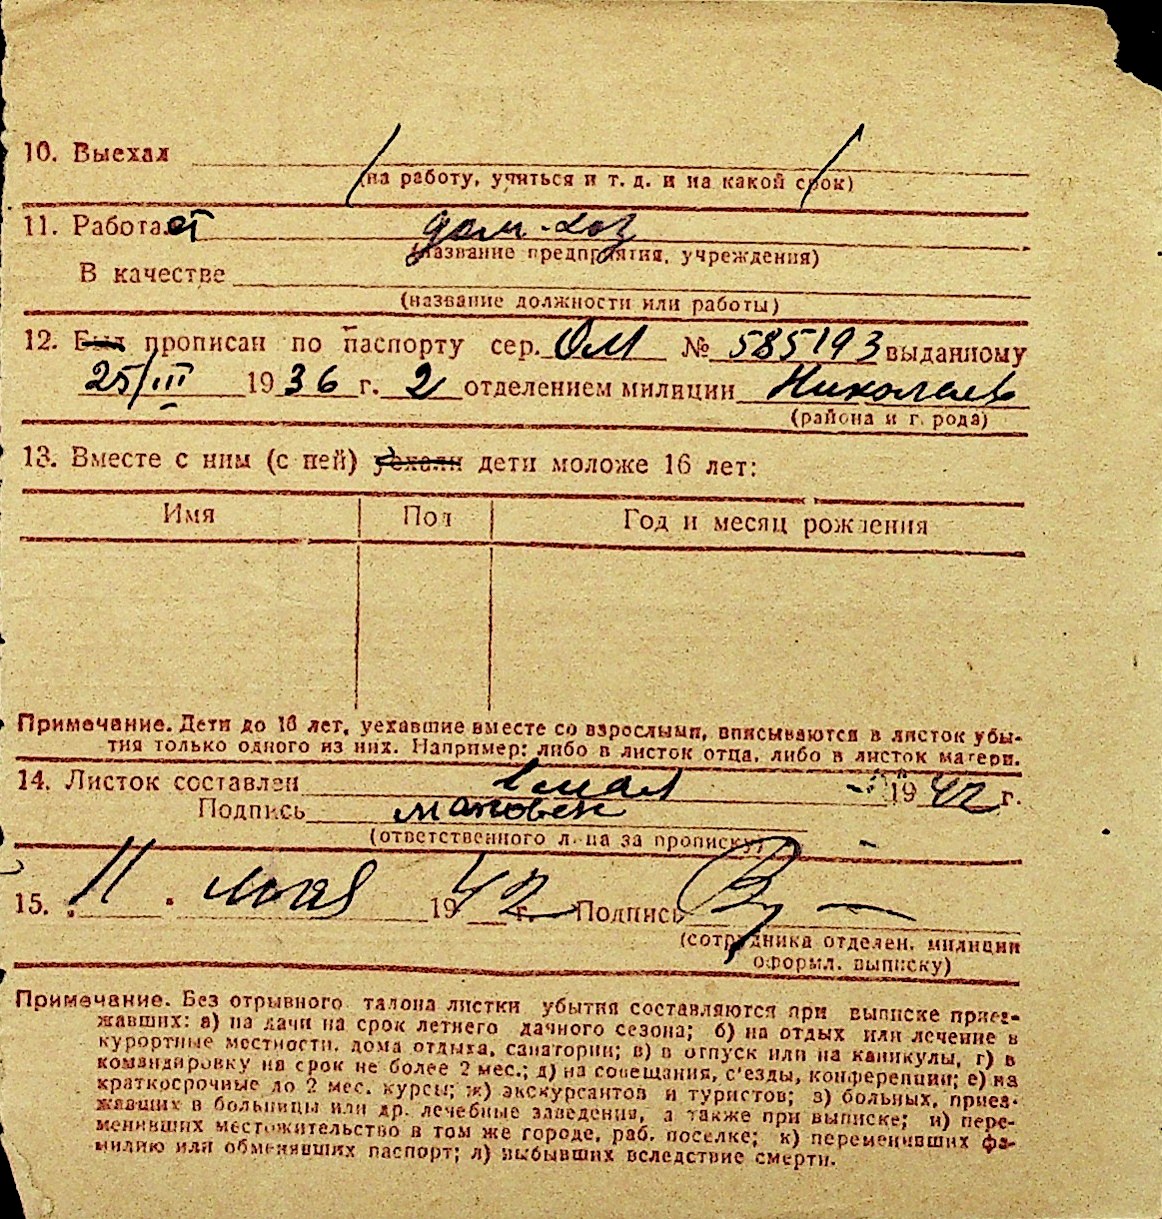 10. Выехал
(на работу, учиться и т. д. и на какой срок)
11. Работает дом-хоз
(название предприятия, учреждения)
В качестве
(название должности или работы)
12. Был прописан по паспорту сер. ОМ № 585193 выданному
25/III 1936 г. 2 отделением милиции Николаев
(района и города)
13. Вместе с ним (с ней) уехали дети моложе 16 лет:
Имя Пол Год и месяц рождения
Примечание. Дети до 16 лет, уехавшие вместе со взрослыми, вписываются в листок убы-
тия только одного из них. Например: либо в листок отца, либо в листок матери.
14. Листок составлен 1 мая 1942 г.
Подпись
(ответственного лица за прописку)
15. 11 мая 1942 г. Подпись
(сотрудника отделен. милиции
оформл. выписку)
Примечание. Без отрывного талона листки убытия составляются при выписке приез-
жавших: а) на дачи на срок летнего дачного сезона; б) на отдых или лечение в
курортные местности, дома отдыха, санатории; в) в отпуск или на каникулы, г) в
командировку на срок не более 2 мес.; д) на совещания, с'езды, конференции; е) на
краткосрочные до 2 мес. курсы; ж) экскурсантов и туристов; з) больных, приез-
жавших в больницы или др. лечебные заведения, а также при выписке; и) пере-
менивших местожительство в том же городе, раб. поселке; к) переменивших фа-
милию или обменявших паспорт; л) выбывших вследствие смерти.